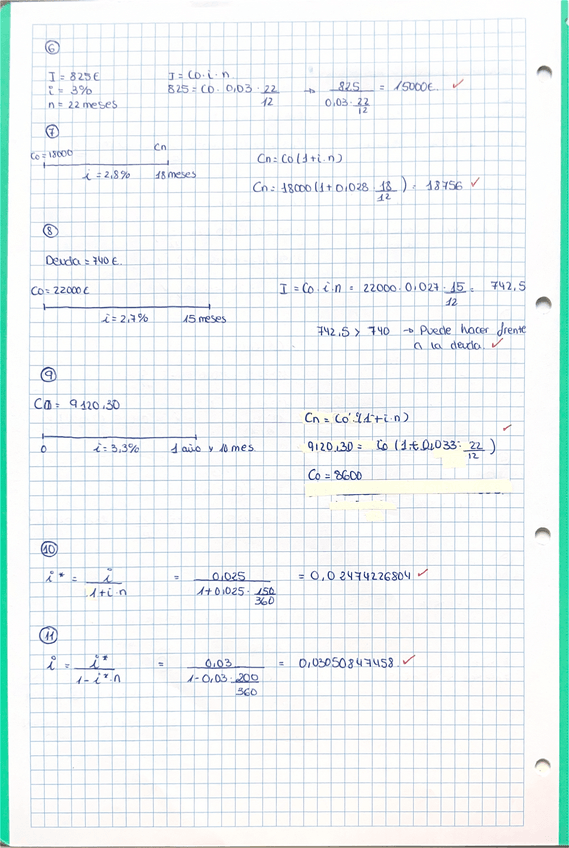 6
I = 825 €
i = 3%
n = 22 meses
I = Co · i · n
825 = Co · 0,03 · 22/12 → 825 / 0,03 · 22/12 = 15000 €. ✓
7
Co = 18000
Cn
i = 2,8% 18 meses
Cn = Co (1 + i · n)
Cn = 18000 (1 + 0,028 · 18/12) = 18756 ✓
8
Deuda = 740 €.
Co = 22000 €
i = 2,7% 15 meses
I = Co · i · n = 22000 · 0,027 · 15/12 = 742,5
742,5 > 740 → Puede hacer frente
a la deuda. ✓
9
= 9120,30
0 i = 3,3% 1 año y 10 mes
Cn = Co · (1 + i · n)
9120,30 = Co (1 + 0,033 · 22/12) ✓
Co = 8600
10
i* = i / 1 + i · n = 0,025 / 1 + 0,025 · 150/360 = 0,02474226804 ✓
11
i = i* / 1 - i* · n = 0,03 / 1 - 0,03 · 200/360 = 0,03050847458. ✓